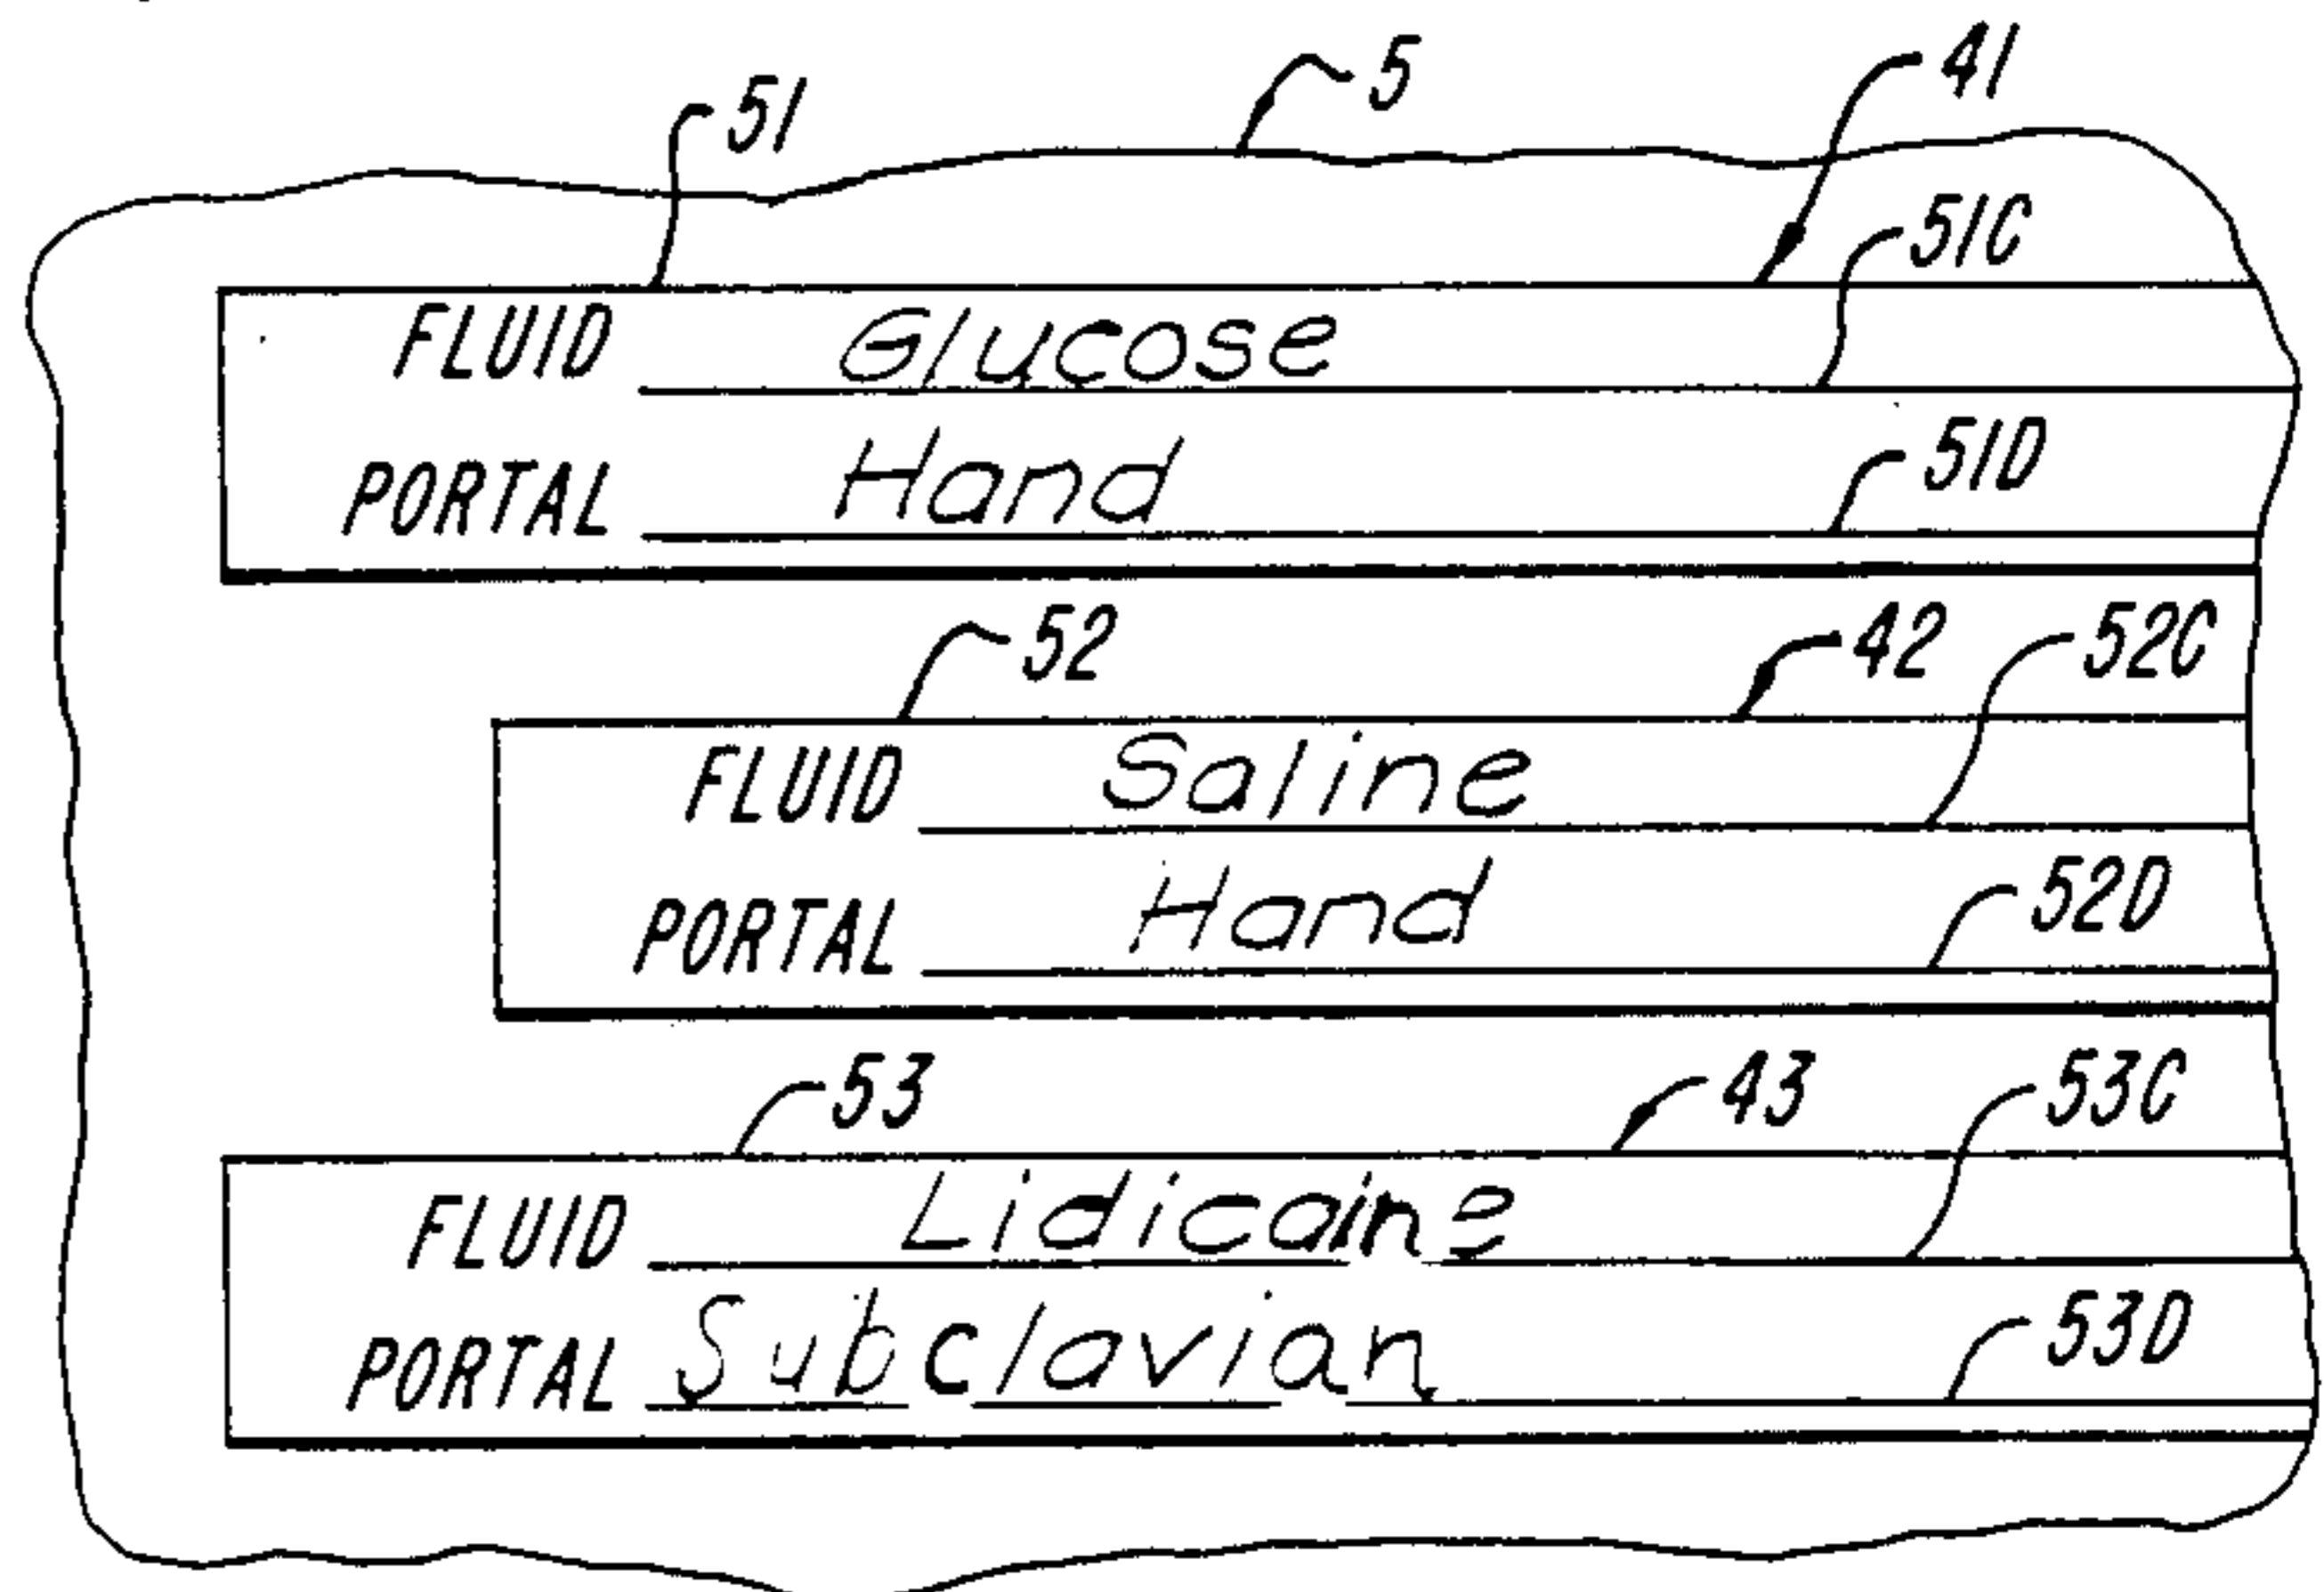 5
41
51
51C
FLUID Glucose
51D
PORTAL Hand
52
42
52C
FLUID Saline
52D
PORTAL Hand
53
43
53C
FLUID Lidicaine
53D
PORTAL Subclavian